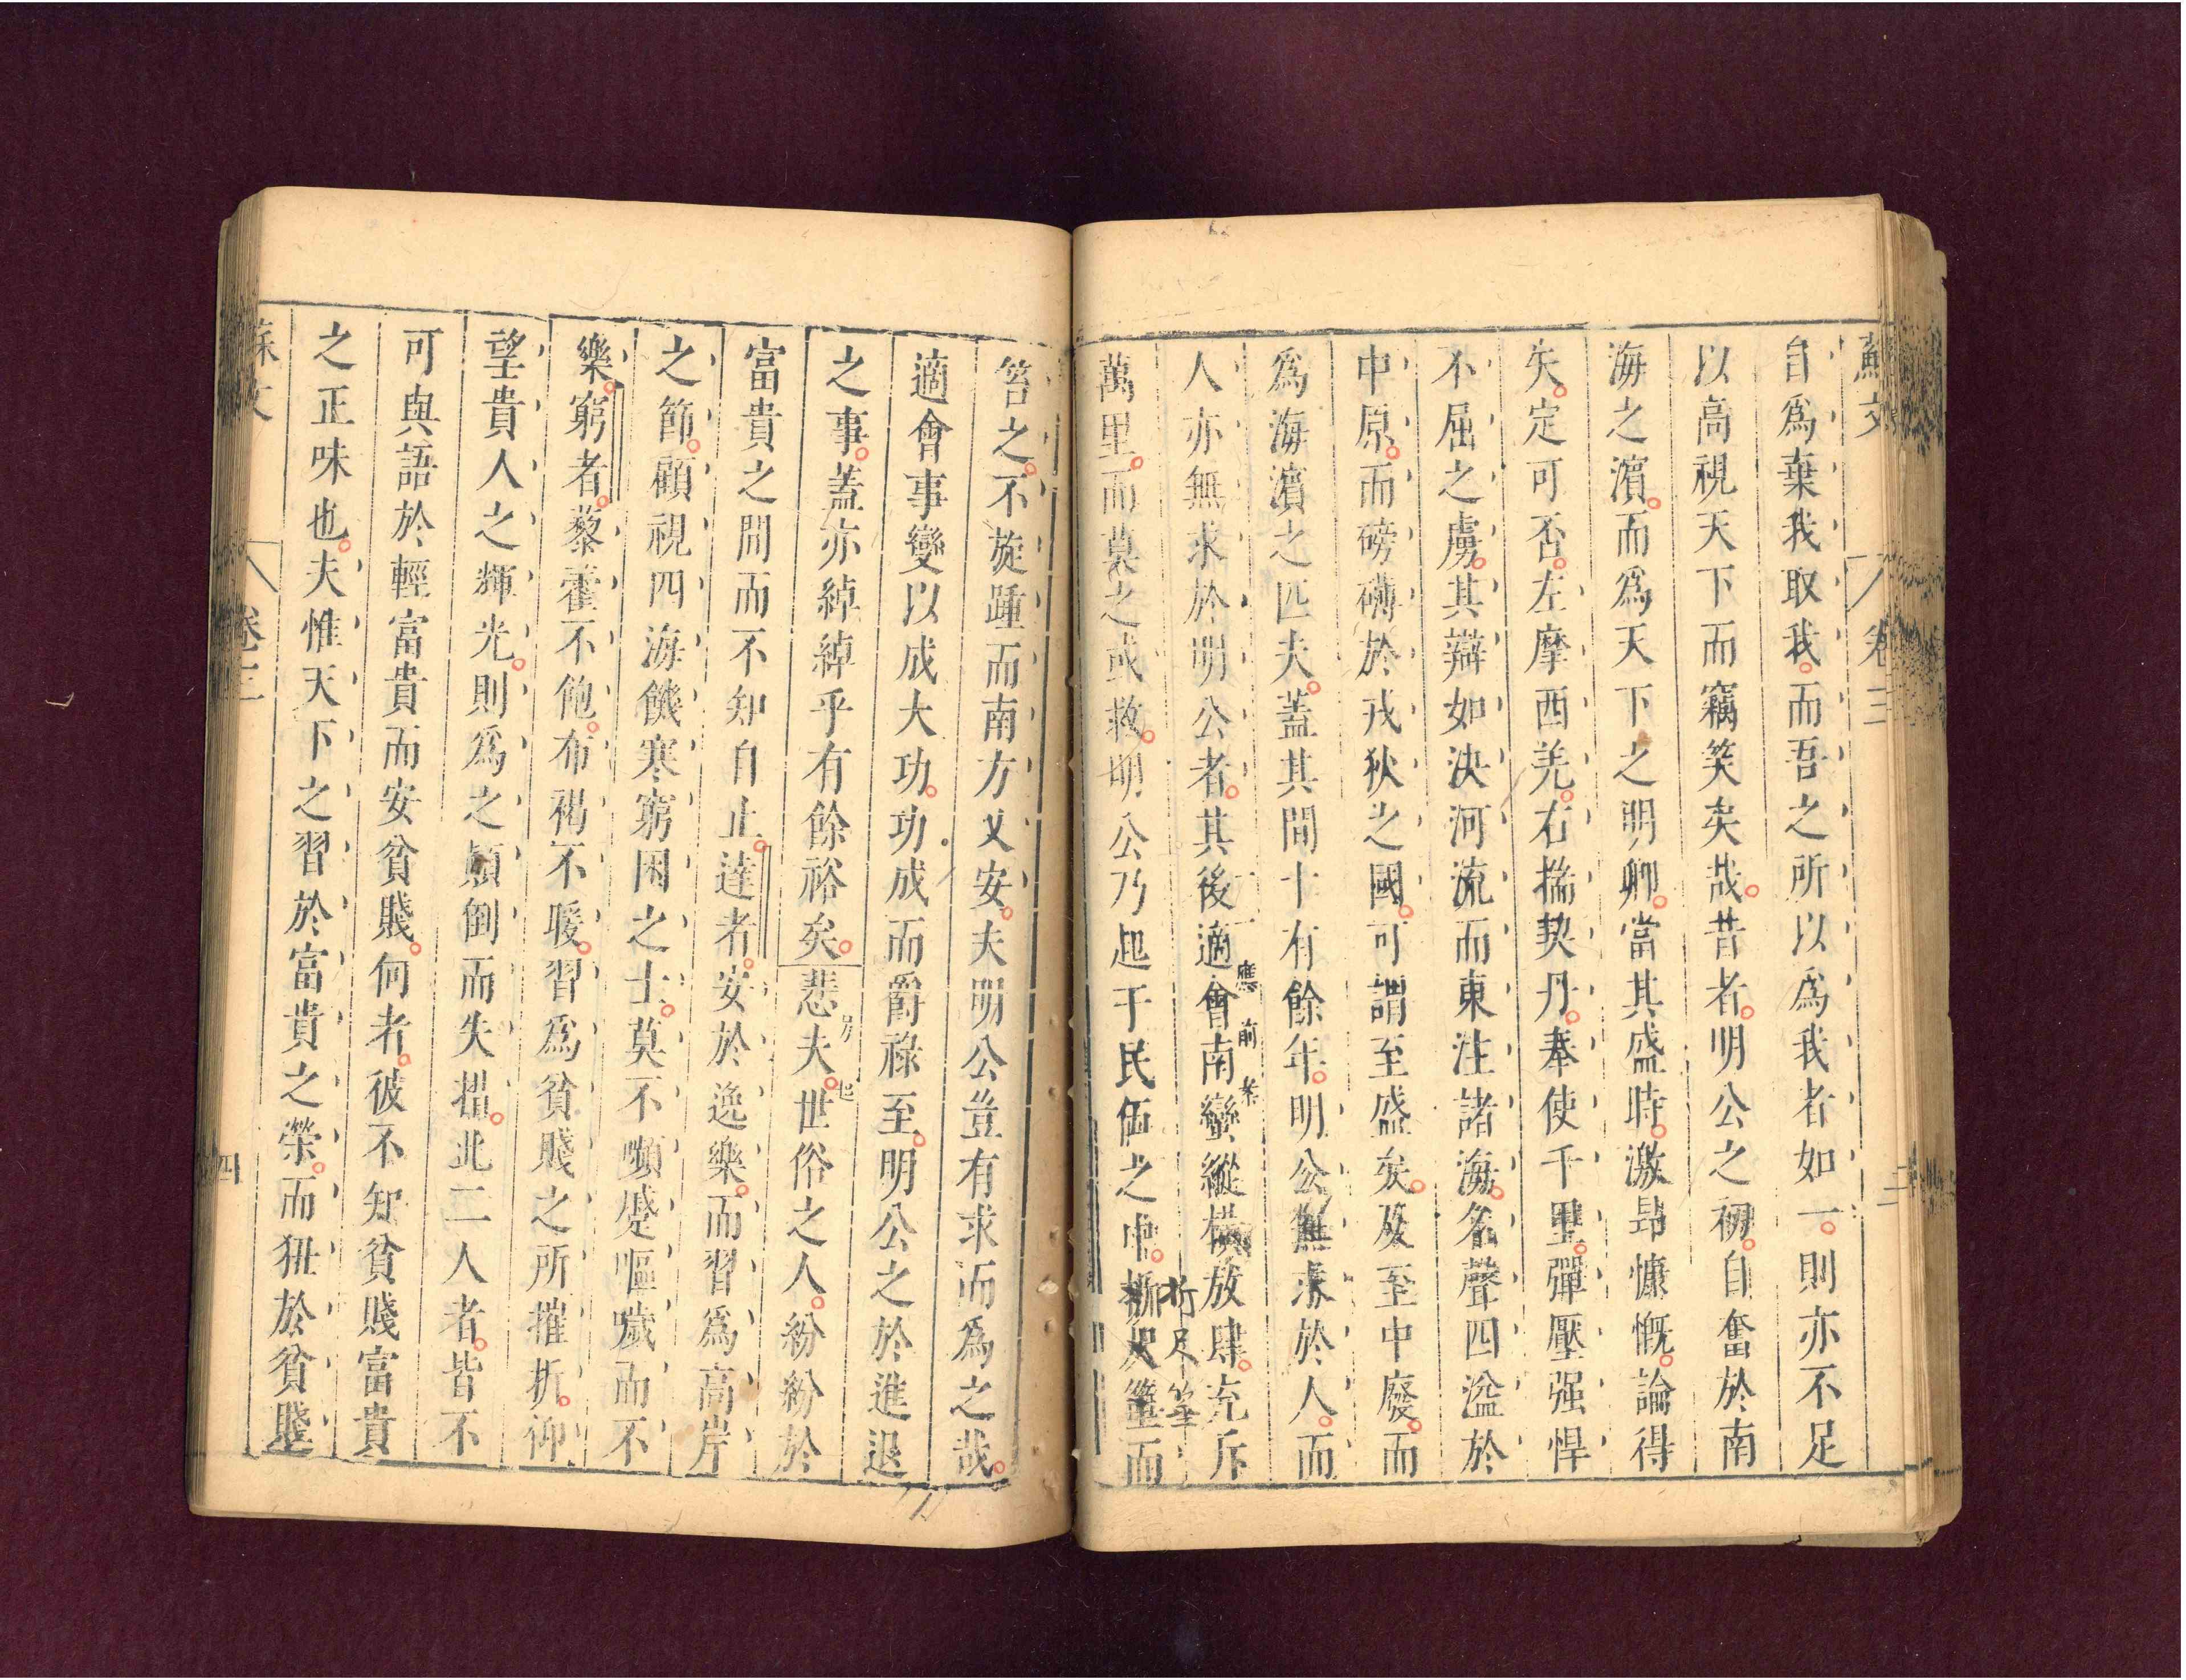 蘇文 卷三 三
自爲棄我取我。而吾之所以爲我者如一。則亦不足
以高視天下而竊笑矣哉。昔者。明公之初。自奮於南
海之濵。而爲天下之明卿。當其盛時。激昻慷慨。論得
失。定可否。左摩西羌。右揣契丹。奉使千里。彈壓强悍
不屈之虜。其辯如決河流而東注諸海。名聲四溢於
中原。而磅礴於戎狄之國。可謂至盛矣。及至中廢。而
爲海濵之匹夫。蓋其間十有餘年。明公無求於人。而
人亦無求於明公者。其後適會南蠻縱橫放肆。充斥
應前案
萬里。而莫之或救。明公乃起于民伍之中。折尺箠而
折尺箠
笞之。不旋踵而南方乂安。夫明公豈有求而爲之哉。
適會事變以成大功。功成而爵祿至。明公之於進退
之事。蓋亦綽綽乎有餘裕矣。悲夫。世俗之人。紛紛於
富貴之間而不知自止。達者。安於逸樂。而習爲高岸
之節。顧視四海饑寒窮困之士。莫不嚬蹙嘔噦而不
樂。窮者。藜藿不飽。布褐不暖。習爲貧賤之所摧折。仰
望貴人之輝光。則爲之顚倒而失措。此二人者。皆不
可與語於輕富貴而安貧賤。何者。彼不知貧賤富貴
之正味也。夫惟天下之習於富貴之榮。而狃於貧賤
蘇文 卷三 四